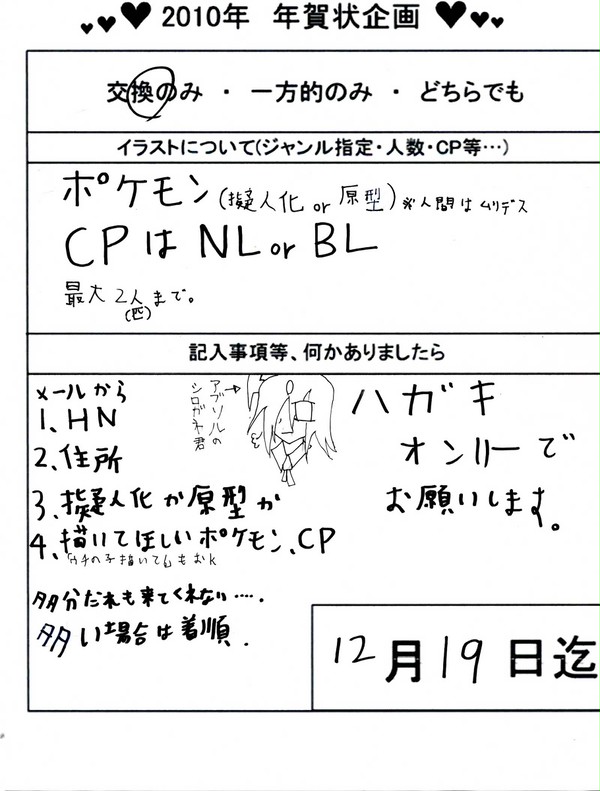 2010年 年賀状企画
交換のみ ・ 一方的のみ ・ どちらでも
イラストについて(ジャンル指定・人数・CP等…)
ポケモン(擬人化 or 原型)※人間はムリデス
CPは NL or BL
最大2人まで。
(匹)
記入事項等、何かありましたら
メールから
1、HN
2、住所
3、擬人化か原型か
4、描いてほしいポケモン、CP
ウチの子描いてくもおk
多分だれも来てくれない‥‥.
多い場合は着順.
アブソルの
シロガネ君
ハガキ
オンリーで
お願いします。
12月19日迄